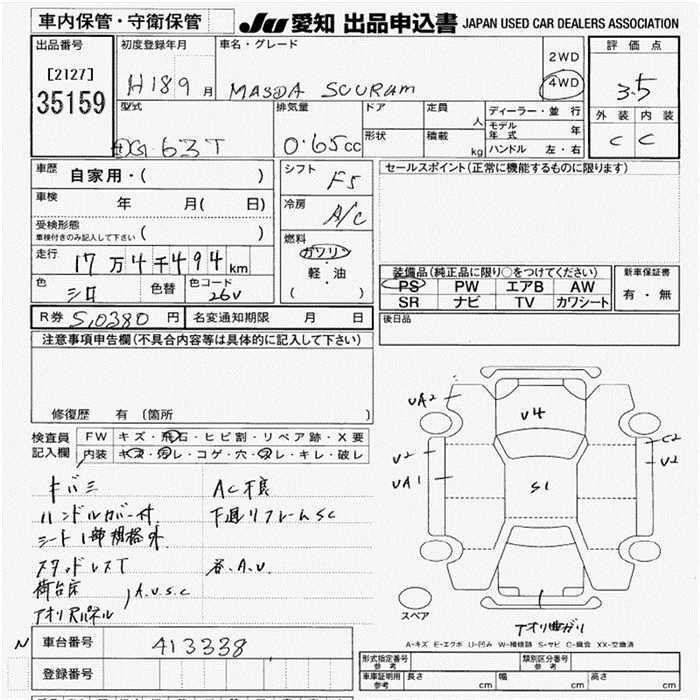 車内保管・守衛保管
JU 愛知 出品申込書 JAPAN USED CAR DEALERS ASSOCIATION
出品番号
[2127]
35159
初度登録年月
H18 9 月
車名・グレード
MASDA SCURAM
2WD
4WD
評価点
3.5
外装 内装
C C
型式
DG 63T
排気量
0.65cc
ドア
形状
定員 人
積載 kg
ディーラー・並行
モデル年式 年
ハンドル 左・右
車歴 自家用・( )
車検 年 月( 日)
受検形態
車検付きのみ記入して下さい ( )
走行 17万4千494km
色 シロ
色替
色コード 26V
シフト F5
冷房 A/C
燃料
ガソリン
軽・油
( )
セールスポイント(正常に機能するものに限ります)
装備品(純正品に限り○をつけてください)
PS PW エアB AW
SR ナビ TV カワシート
新車保証書
有・無
R券 5,0380 円
名変通知期限 月 日
後日品
注意事項申告欄(不具合内容等は具体的に記入して下さい)
修復歴 有 (箇所 )
検査員記入欄
FW キズ・飛石・ヒビ割・リペア跡・X要
内装 キズ・汚レ・コゲ・穴・スレ・キレ・破レ
キバミ
ハンドルカバー付
シート1部規格外
スタッドレスT
荷台床
アオリパネル
A.U.S.C
AC不良
下廻リフレームSC
各.A.U.
UA2
V4
V2
UA1
S1
C2
V2
スペア
アオリ曲ガリ
A-キズ E-エクボ U-凹み W-補修跡 S-サビ C-腐食 XX-交換済
N
車台番号 413338
登録番号
形式指定番号
参考
類別区分番号
参考
車庫証明用
参考
長さ cm
幅 cm
高さ cm